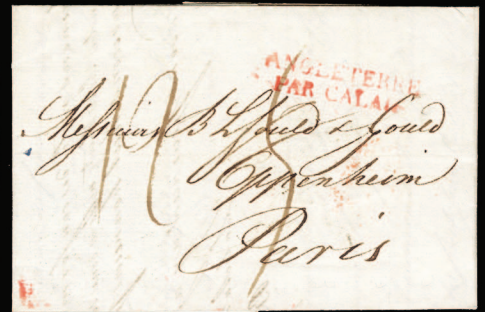 ANGLETERRE
PAR CALAIS
Messieurs B L Fould & Fould
Oppenheim
Paris